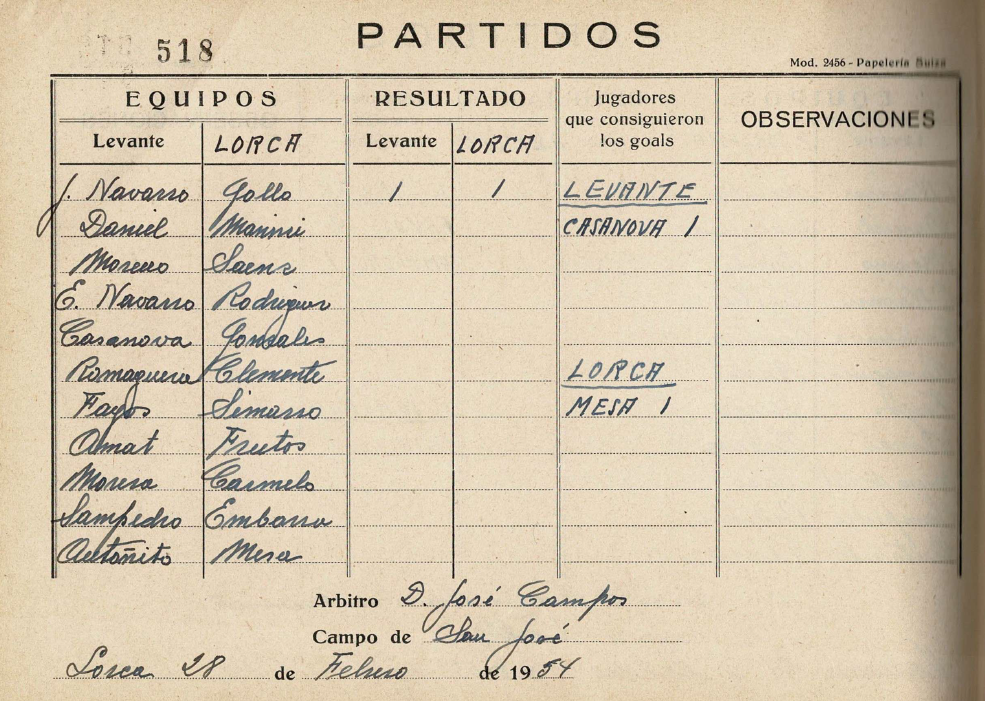 518
PARTIDOS
Mod. 2456 - Papelería Suiza
EQUIPOS RESULTADO Jugadores que consiguieron los goals OBSERVACIONES
Levante LORCA Levante LORCA
J. Navarro Gollo 1 1 LEVANTE
Daniel CASANOVA 1
Moreno Saenz
E. Navarro Rodriguez
Casanova Gonzales
Romaguera Clemente LORCA
Fayos Simarro MESA 1
Amat Frutos
Morera Carmelo
Sampedro Embarra
Antoñito Mesa
Arbitro D. José Campos
Campo de San José
Lorca 28 de Febrero de 1954